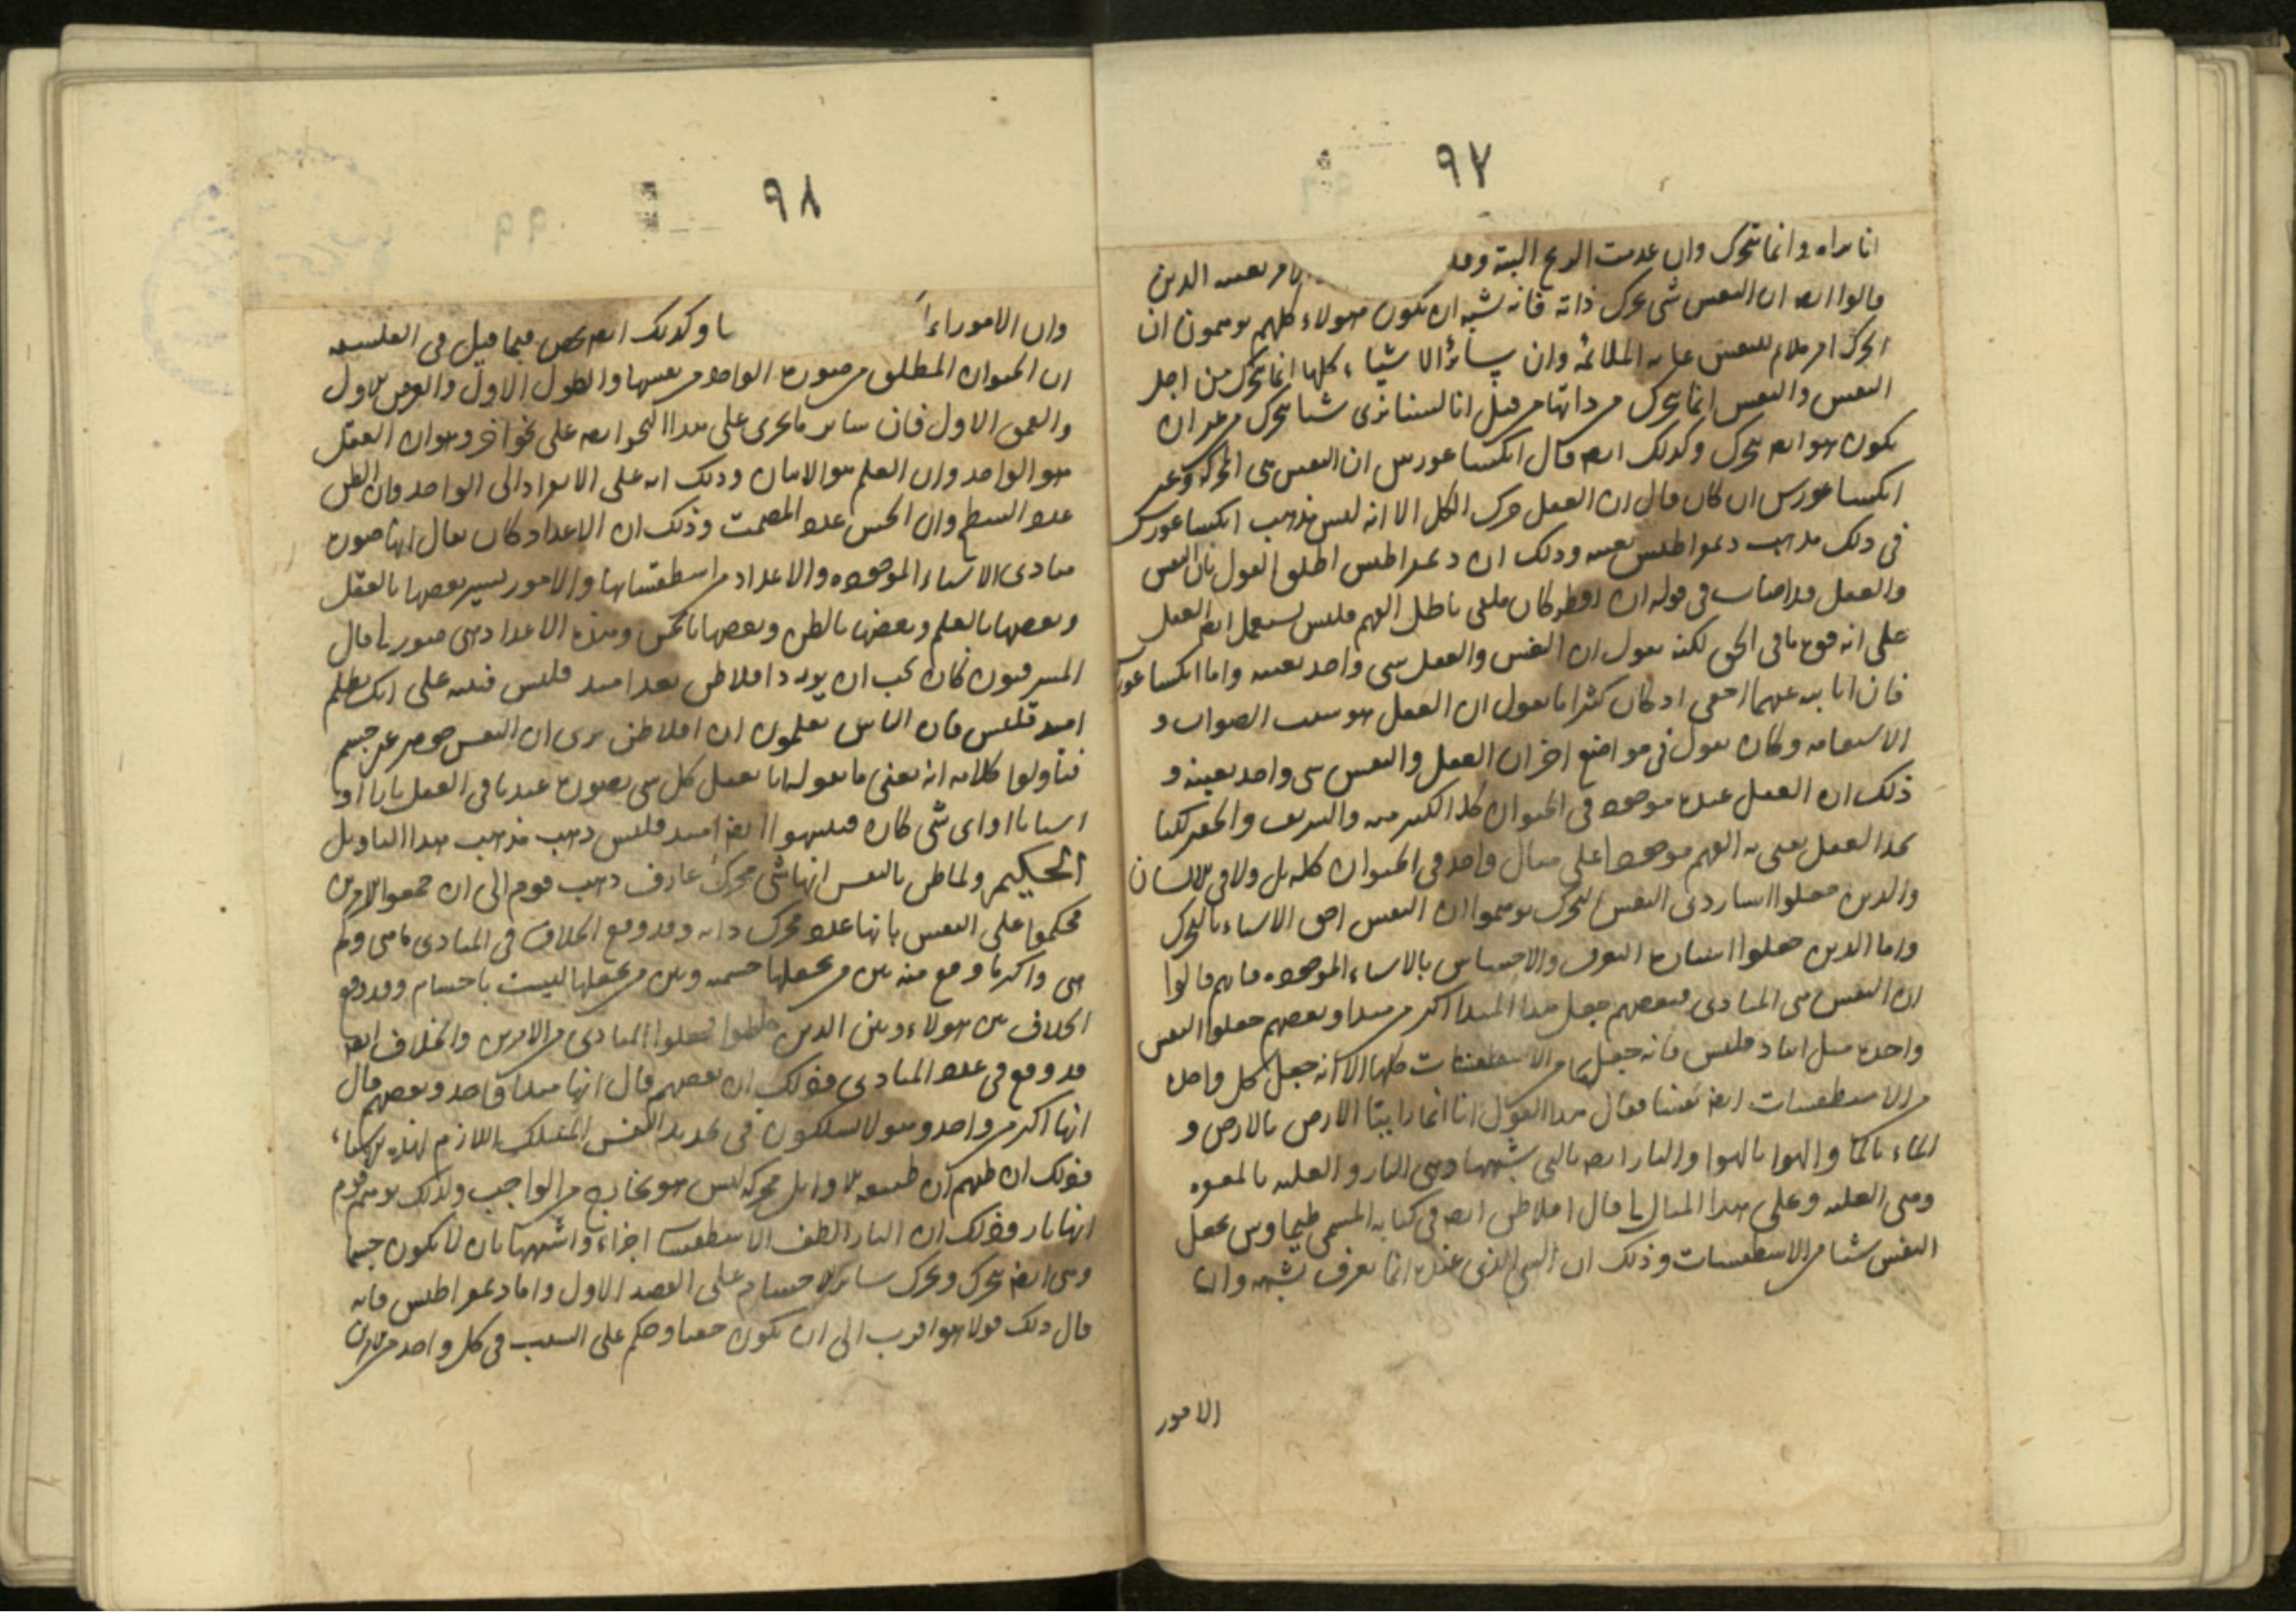 ٩٧
انا نراه وانما تتحرك وان عدمت الريح البتة وقد امر بعينه الذين
قالوا ايضا ان النفس شى محرك ذاته فانه يشبه ان يكون هولاء كلهم توهمون ان
الحركة امر ملائم للنفس غاية الملائمة وان سائر الاشياء كلها انما تتحرك من اجل
النفس والنفس انما تتحرك من ذاتها من قبل انا لسنا نرى شيا يحرك من غير ان
يكون هو ايضا يتحرك وكذلك ايضا قال انكساغورس ان النفس هى المحركة وغير
انكساغورس ان كان قال ان العقل حرك الكل الا انه ليس مذهب انكساغورس
فى ذلك مذهب ديمقراطيس بعينه وذلك ان ديمقراطيس اطلق القول بان النفس
والعقل قد اصاب فى قوله ان اقطر كان ملقى باطل الفهم فليس يستعمل ايضا العقل
على انه قوة ما فى الحق لكنه يقول ان النفس والعقل شى واحد بعينه واما انكساغورس
فان ابانته عنهما اخفى اذ كان كثيرا ما يقول ان العقل هو سبب الصواب و
الاستقامة وكان يقول فى مواضع اخر ان العقل والنفس شى واحد بعينه و
ذلك ان العقل عنده موجود فى الحيوان كله الكبير منه والشريف والحقير لكنا
نجد العقل يعنى به الفهم موجودا على مثال واحد فى الحيوان كله بل ولا فى الانسان
والذين جعلوا اشاردى النفس التحرك توهموا ان النفس احق الاشياء بالتحرك
واما الذين جعلوا اشارة التعرف والاحساس بالاشياء الموجودة فانهم قالوا
ان النفس هى المبادى فبعضهم جعل هذا المبدا اكثر من مبدا وبعضهم جعلوا النفس
واحدة مثل انبادقليس فانه جعلها من الاسطقسات كلها الا انه جعل كل واحد
من الاسطقسات ايضا نفسا فقال هذا القول انا انما راينا الارض بالارض و
الماء بالماء والهوا بالهوا والنار ايضا بالتى شبهها وهى النار والغلبة بالمعوه
وهى الغلبة وعلى هذا المثال ما قال افلاطن ايضا فى كتابه المسمى طيماوس يجعل
النفس شيا من الاسطقسات وذلك ان الشى الذى عنده انما يعرف بشبهه وان
الامور
٩٨
وان الامور اء وكذلك ايضا لخص فيما قيل فى الفلسفة
ان الحيوان المطلق من صورة الواحد من نفسها والطول الاول والعرض الاول
والعمق الاول فان سائر ما يجرى على هذا النحو ايضا على نحو اخر وهو ان العقل
هو الواحد وان العلم هو الاثنان وذلك انه على الانفراد الى الواحد وان الظن
عدد السطح وان الحس عدد المصمت وذلك ان الاعداد كان يقال انها صورة
مبادى الاشياء الموجودة والاعداد من اسطقساتها والامور يسبر بعضها بالعقل
وبعضها بالعلم وبعضها بالظن وبعضها بالحس وهذه الاعداد هى صور ما قال
المسرفون كان يجب ان يورد افلاطن بعد امبدقليس فنبه على انك يظلم
امبدقليس فان الناس يعلمون ان افلاطن يرى ان النفس جوهر غير جسم
فتاولوا كلامه انه يعنى ما يقوله انا نعقل كل شى بصورة عندنا فى العقل نارا او
انسانا او اى شى كان فينبهوا ايضا امبدقليس ذهب مذهب هذا التاويل
الحكيم ولما ظن بالنفس انها شى محرك عارف ذهب قوم الى ان جمعوا الامرين
فحكموا على النفس بانها عدد محرك ذاته وقد وقع الخلاف فى المبادى ما هى وكم
هى واكثر ما وقع منه بين من يجعلها جسمية وبين من يجعلها ليست باجسام وقد وقع
الخلاف بين هولاء وبين الذين خلطوا فجعلوا المبادى من الامرين والخلاف ايضا
قد وقع فى عدد المبادى فذلك ان بعضهم قال انها مبدا واحد وبعضهم قال
انها اكثر من واحد وهولا يسلكون فى تحديد النفس المسلك اللازم لهذه الاشياء
فذلك ان ظنهم ان طبيعة الاوائل محركة ليس هو بخارج من الواجب ولذلك توهم قوم
انها نار وذلك ان النار الطف الاسطقسات اجزاء واشبهها بان لا يكون جسما
وهى ايضا تتحرك وتحرك سائر الاجسام على القصد الاول واما ديمقراطيس فانه
قال ذلك قولا هو اقرب الى ان يكون حقا وحكم على السبب فى كل واحد من الامرين